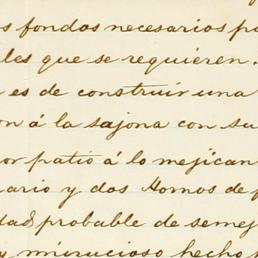 os fondos necesarios pa
les que se requieren.
es de construir una
on á la sajona con su
or patio á lo mejican
ario y dos Hornos de
dad probable de semej
y minucioso hecho